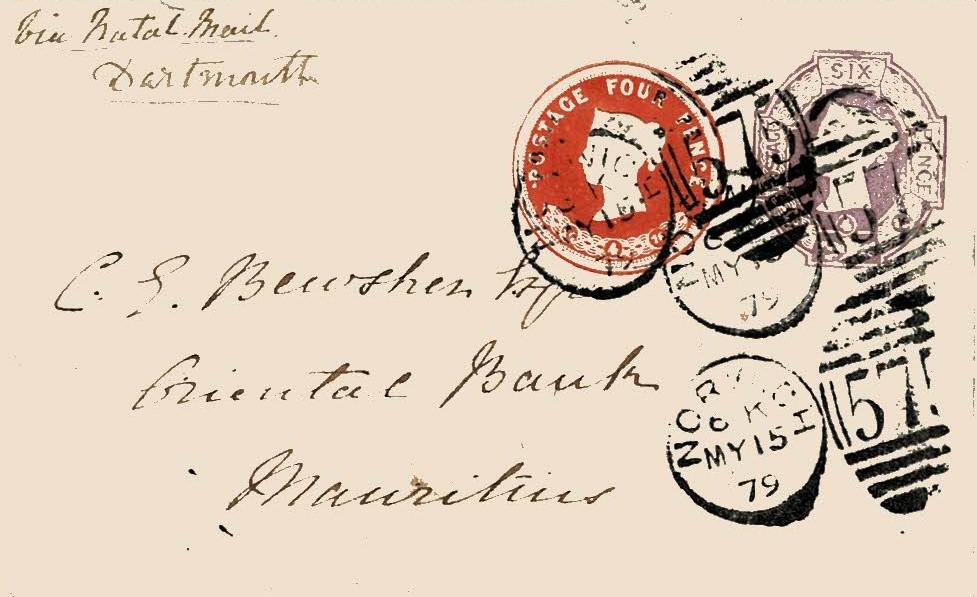 Via Natal Mail
Dartmouth
POSTAGE FOUR PENCE
SIX PENCE
C. E. Bewsher Esq
Oriental Bank
Mauritius
MY 15
79
NORWICH
6 K
MY 15
79
57